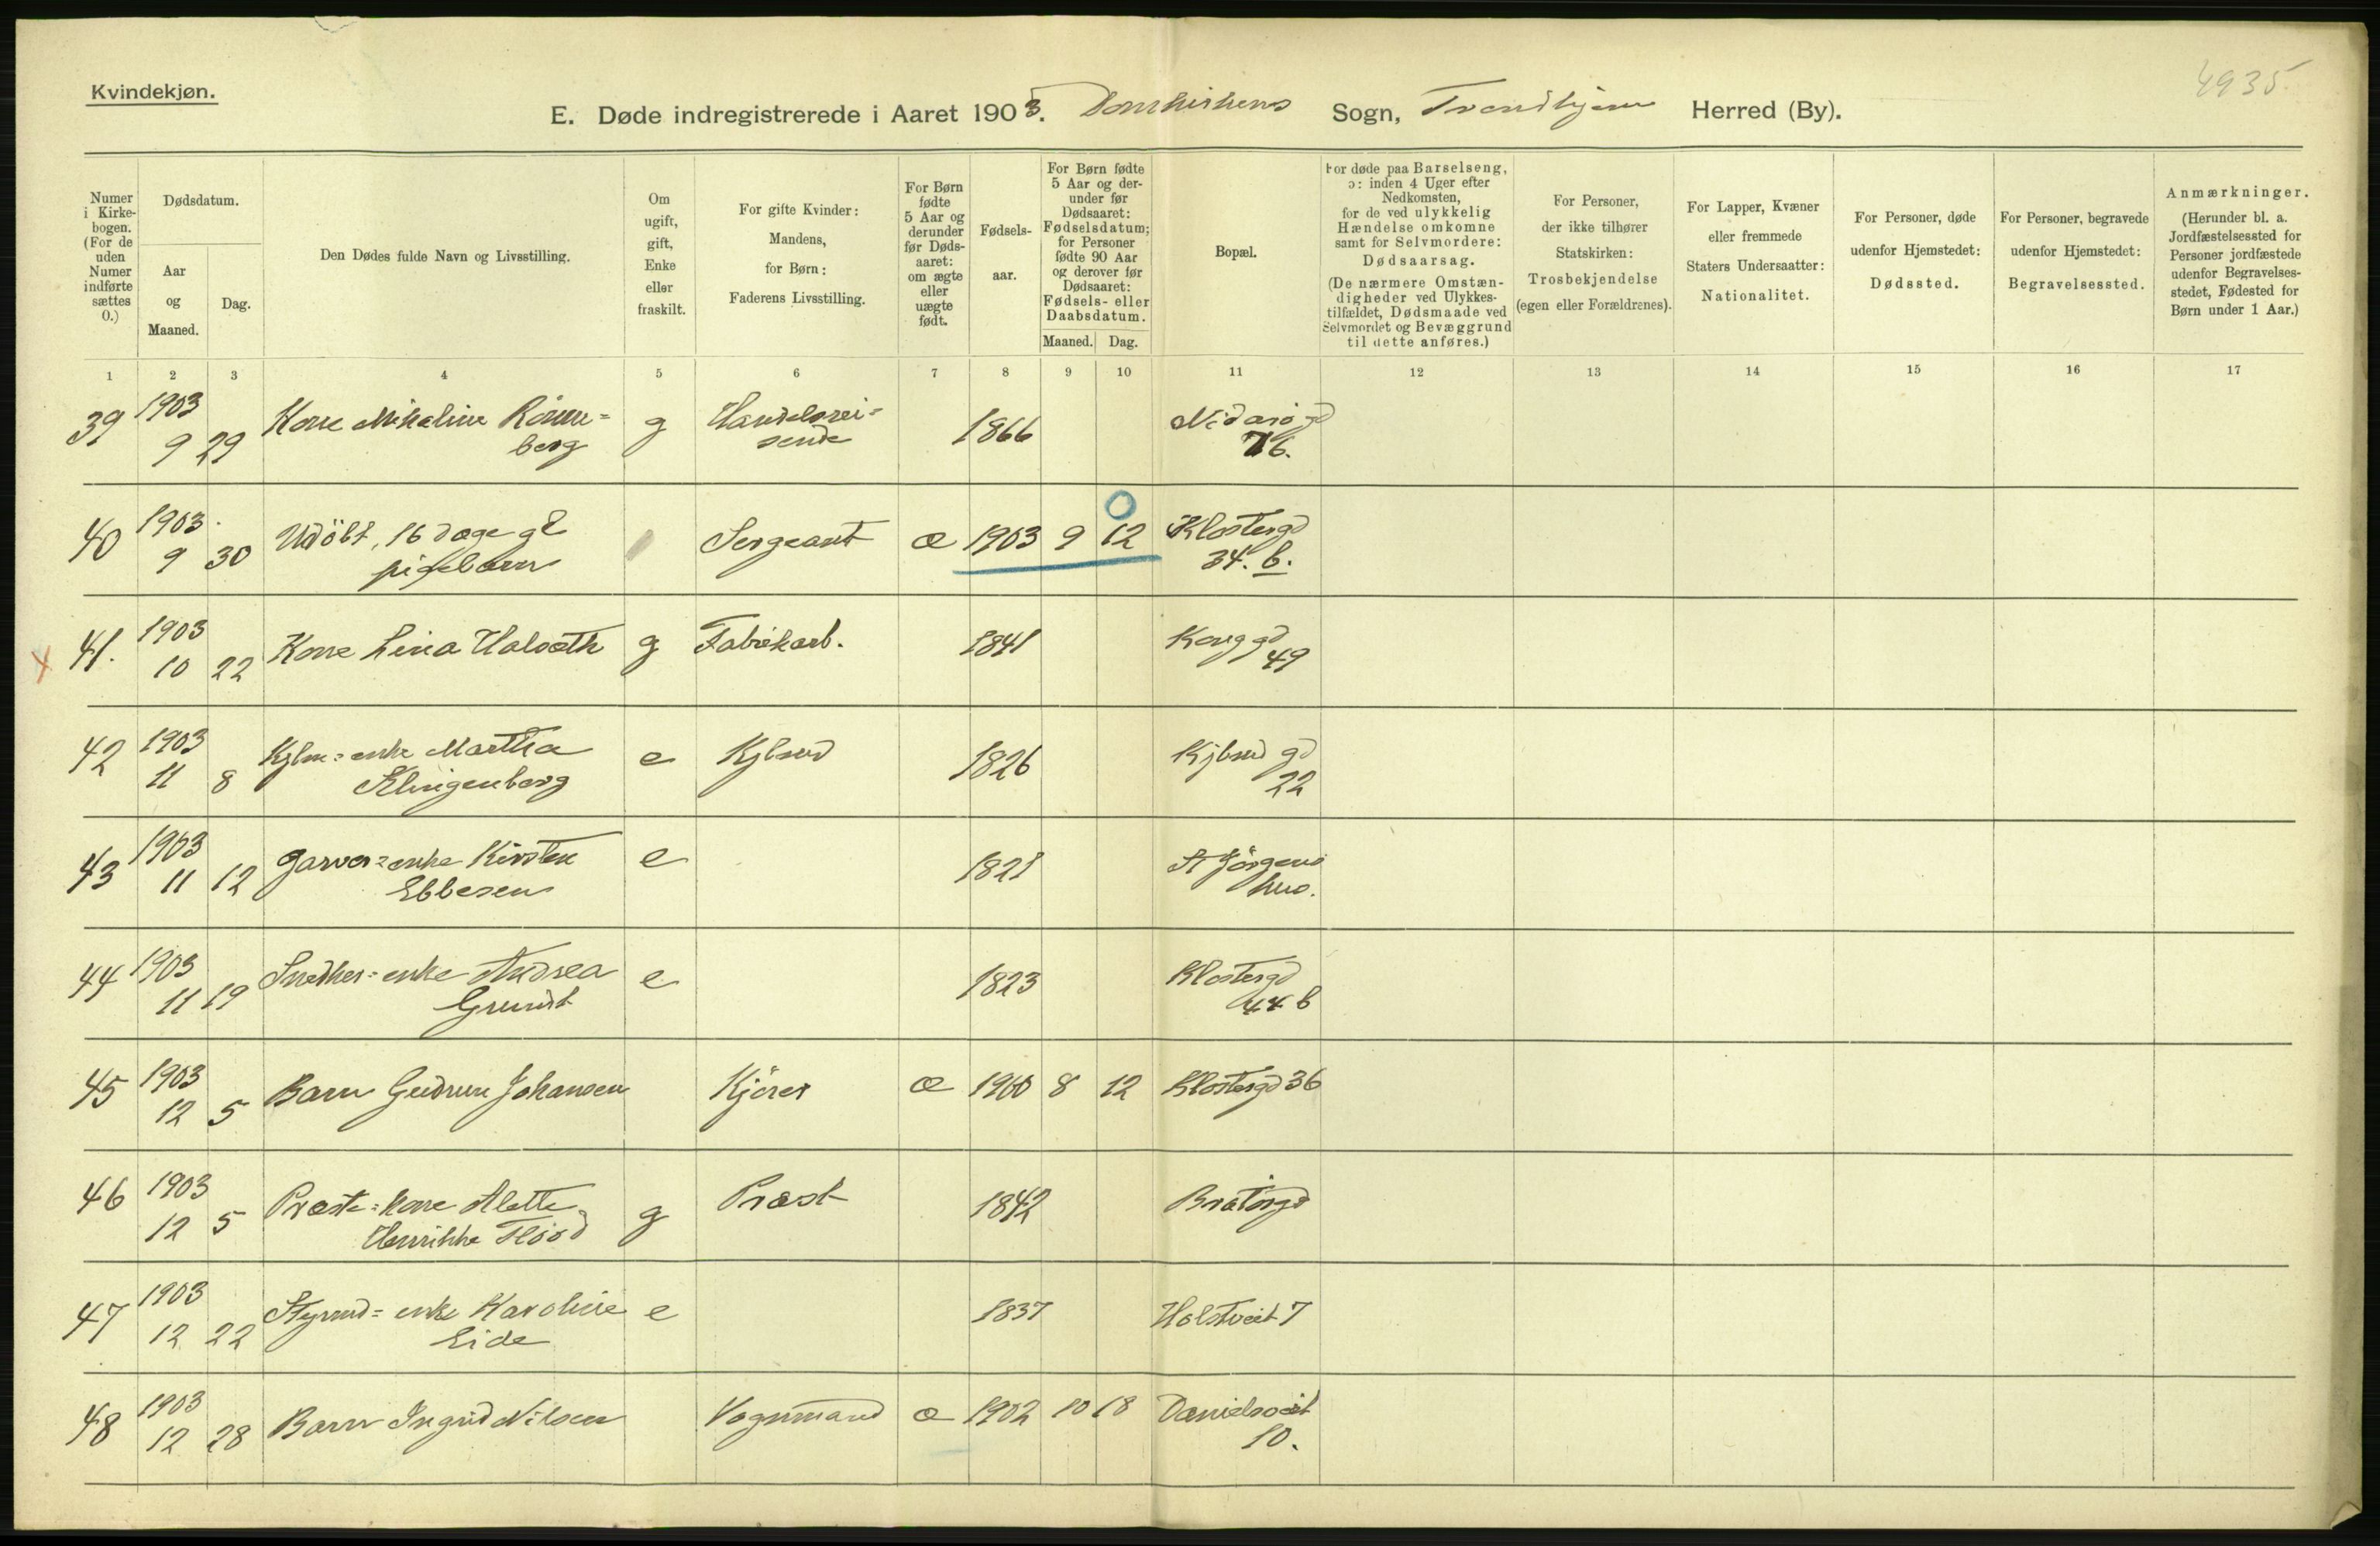 4935.
Kvindekjøn.
E. Døde indregistrerede i Aaret 1903. Domkirkens Sogn, Trondhjem Herred (By).
Numer i Kirkebogen. (For de uden Numer indførte sættes 0.)
Dødsdatum.
Aar og Maaned.
Dag.
Den Dødes fulde Navn og Livsstilling.
Om ugift, gift, Enke eller fraskilt.
For gifte Kvinder: Mandens, for Børn: Faderens Livsstilling.
For Børn fødte 5 Aar og derunder før Dødsaaret: om ægte eller uægte født.
Fødselsaar.
For Børn fødte 5 Aar og derunder før Dødsaaret: Fødselsdatum; for Personer fødte 90 Aar og derover før Dødsaaret: Fødsels- eller Daabsdatum.
Maaned. Dag.
Bopæl.
For døde paa Barselseng, ɔ: inden 4 Uger efter Nedkomsten, for de ved ulykkelig Hændelse omkomne samt for Selvmordere: Dødsaarsag.
(De nærmere Omstændigheder ved Ulykkestilfældet, Dødsmaade ved Selvmordet og Bevæggrund til dette anføres.)
For Personer, der ikke tilhører Statskirken: Trosbekjendelse (egen eller Forældrenes).
For Lapper, Kvæner eller fremmede Staters Undersaatter: Nationalitet.
For Personer, døde udenfor Hjemstedet: Dødssted.
For Personer, begravede udenfor Hjemstedet: Begravelsessted.
Anmærkninger. (Herunder bl. a. Jordfæstelsessted for Personer jordfæstede udenfor Begravelsesstedet, Fødested for Børn under 1 Aar.)
1 2 3 4 5 6 7 8 9 10 11 12 13 14 15 16 17
39 1903 Kone Mikaline Rönne= g Handelsrei= 1866 Nidarögd
9 29 berg sende 76.
40 1903 Udöbt, 16 dage gl Sergeant æ 1903 9 12 Klostergd
9 30 pigebarn 34. b.
41. 1903 Kone Lina Halseth g Fabrikarb. 1841 Kong gd
10 22 49
42 1903 Kjbm=enke Martha e Kjbmd 1826 Kjbmd gd
11 8 Klingenberg 22
43 1903 Garver=enke Kirsten e 1821 St Jörgens
11 12 Ebbesen hus.
44 1903 Snedker=enke Andrea e 1823 Klostergd
11 19 Grundt 44 b
45 1903 Barn Gudrun Johansen Kjörer æ 1900 8 12 Klostergd 36
12 5
46 1903 Præste=kone Alette g Præst 1842 Bratörgd
12 5 Henrikke Flood
47 1903 Styrmd=enke Karoline e 1837 Holstveit 7
12 22 Eide
48 1903 Barn Ingrid Nilsen Vognmand æ 1902 10 18 Danielsveit
12 28 10.